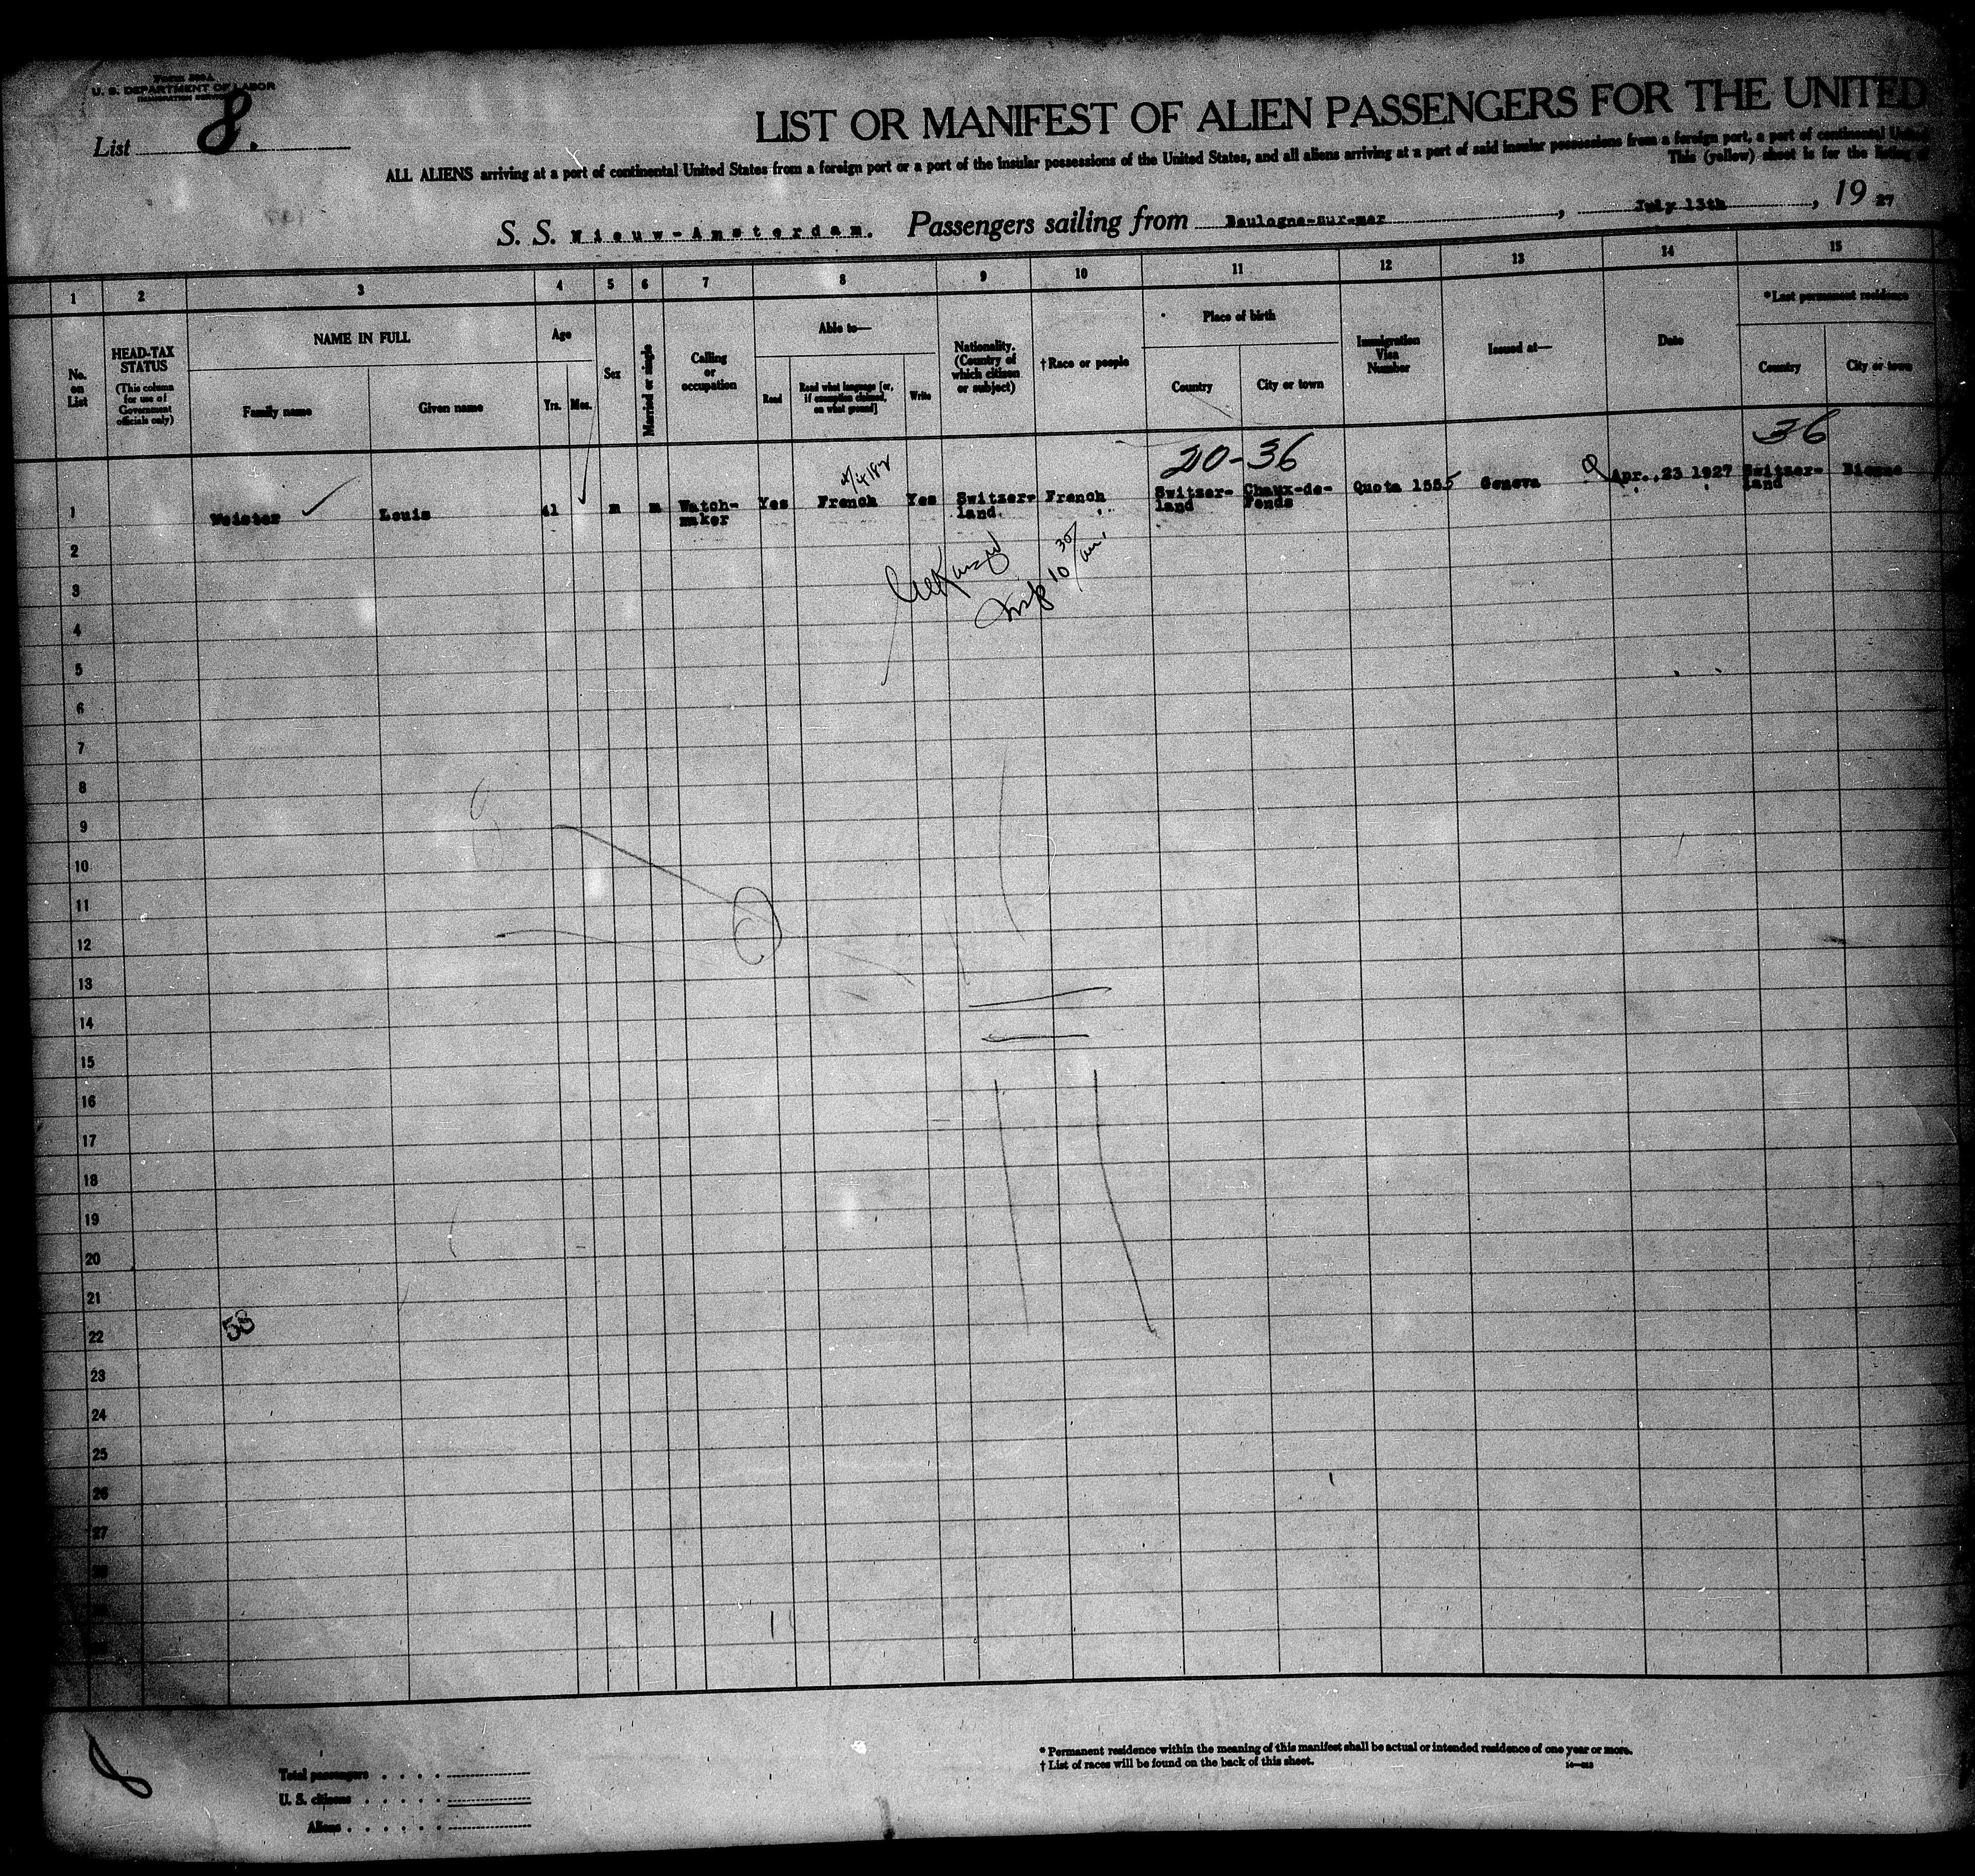 Form 500A
U. S. DEPARTMENT OF LABOR
IMMIGRATION SERVICE
List 8.
LIST OR MANIFEST OF ALIEN PASSENGERS FOR THE UNITED
ALL ALIENS arriving at a port of continental United States from a foreign port or a port of the insular possessions of the United States, and all aliens arriving at a port of said insular possessions from a foreign port, a port of continental United
This (yellow) sheet is for the listing of
S. S. Nieuw-Amsterdam. Passengers sailing from Boulogne-sur-mer, July 13th, 19 27
1 2 3 4 5 6 7 8 9 10 11 12 13 14 15
No. on List
HEAD-TAX STATUS (This column for use of Government officials only)
NAME IN FULL
Family name Given name
Age
Yrs. Mos.
Sex
Married or single
Calling or occupation
Able to—
Read Read what language [or, if exemption claimed, on what ground] Write
Nationality. (Country of which citizen or subject)
†Race or people
Place of birth
Country City or town
Immigration Visa Number
Issued at—
Date
*Last permanent residence
Country City or town
20-36 36
1 Meister Louis 41 m m Watch-maker Yes French Yes Switzer-land. French Switzer-land Chaux-de-Fonds Quota 1555 Geneva Apr., 23 1927 Switzer-land Bienne
2
3
4
5
6
7
8
9
10
11
12
13
14
15
16
17
18
19
20
21
22
58
23
24
25
26
27
8
Total passengers
U. S. citizens
Aliens
* Permanent residence within the meaning of this manifest shall be actual or intended residence of one year or more.
† List of races will be found on the back of this sheet.